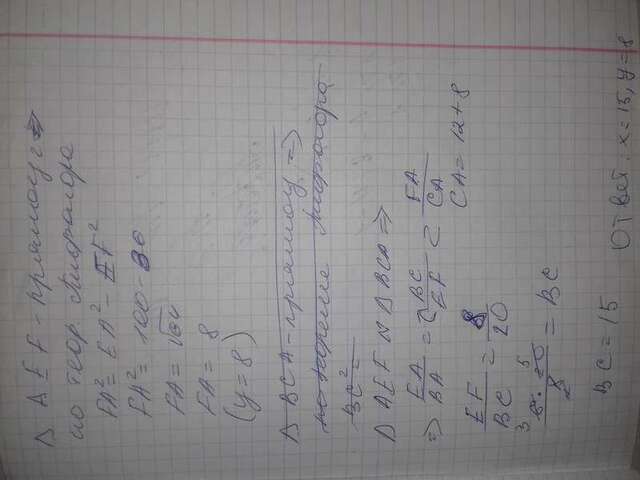 Δ AEF - прямоуг ⇒
по теор. Пифагора
FA² = EA² - EF²
FA² = 100 - 36
FA = √64
FA = 8
(y = 8)
Δ BCA - прямоуг ⇒
по теореме Пифагора
BC² =
Δ AEF ∾ Δ BCA ⇒
⇒ EA/BA = BC/EF = FA/CA
CA = 12 + 8
EF/BC = 8/20
6 · 20/8 = BC
BC = 15
Ответ: x = 15, y = 8